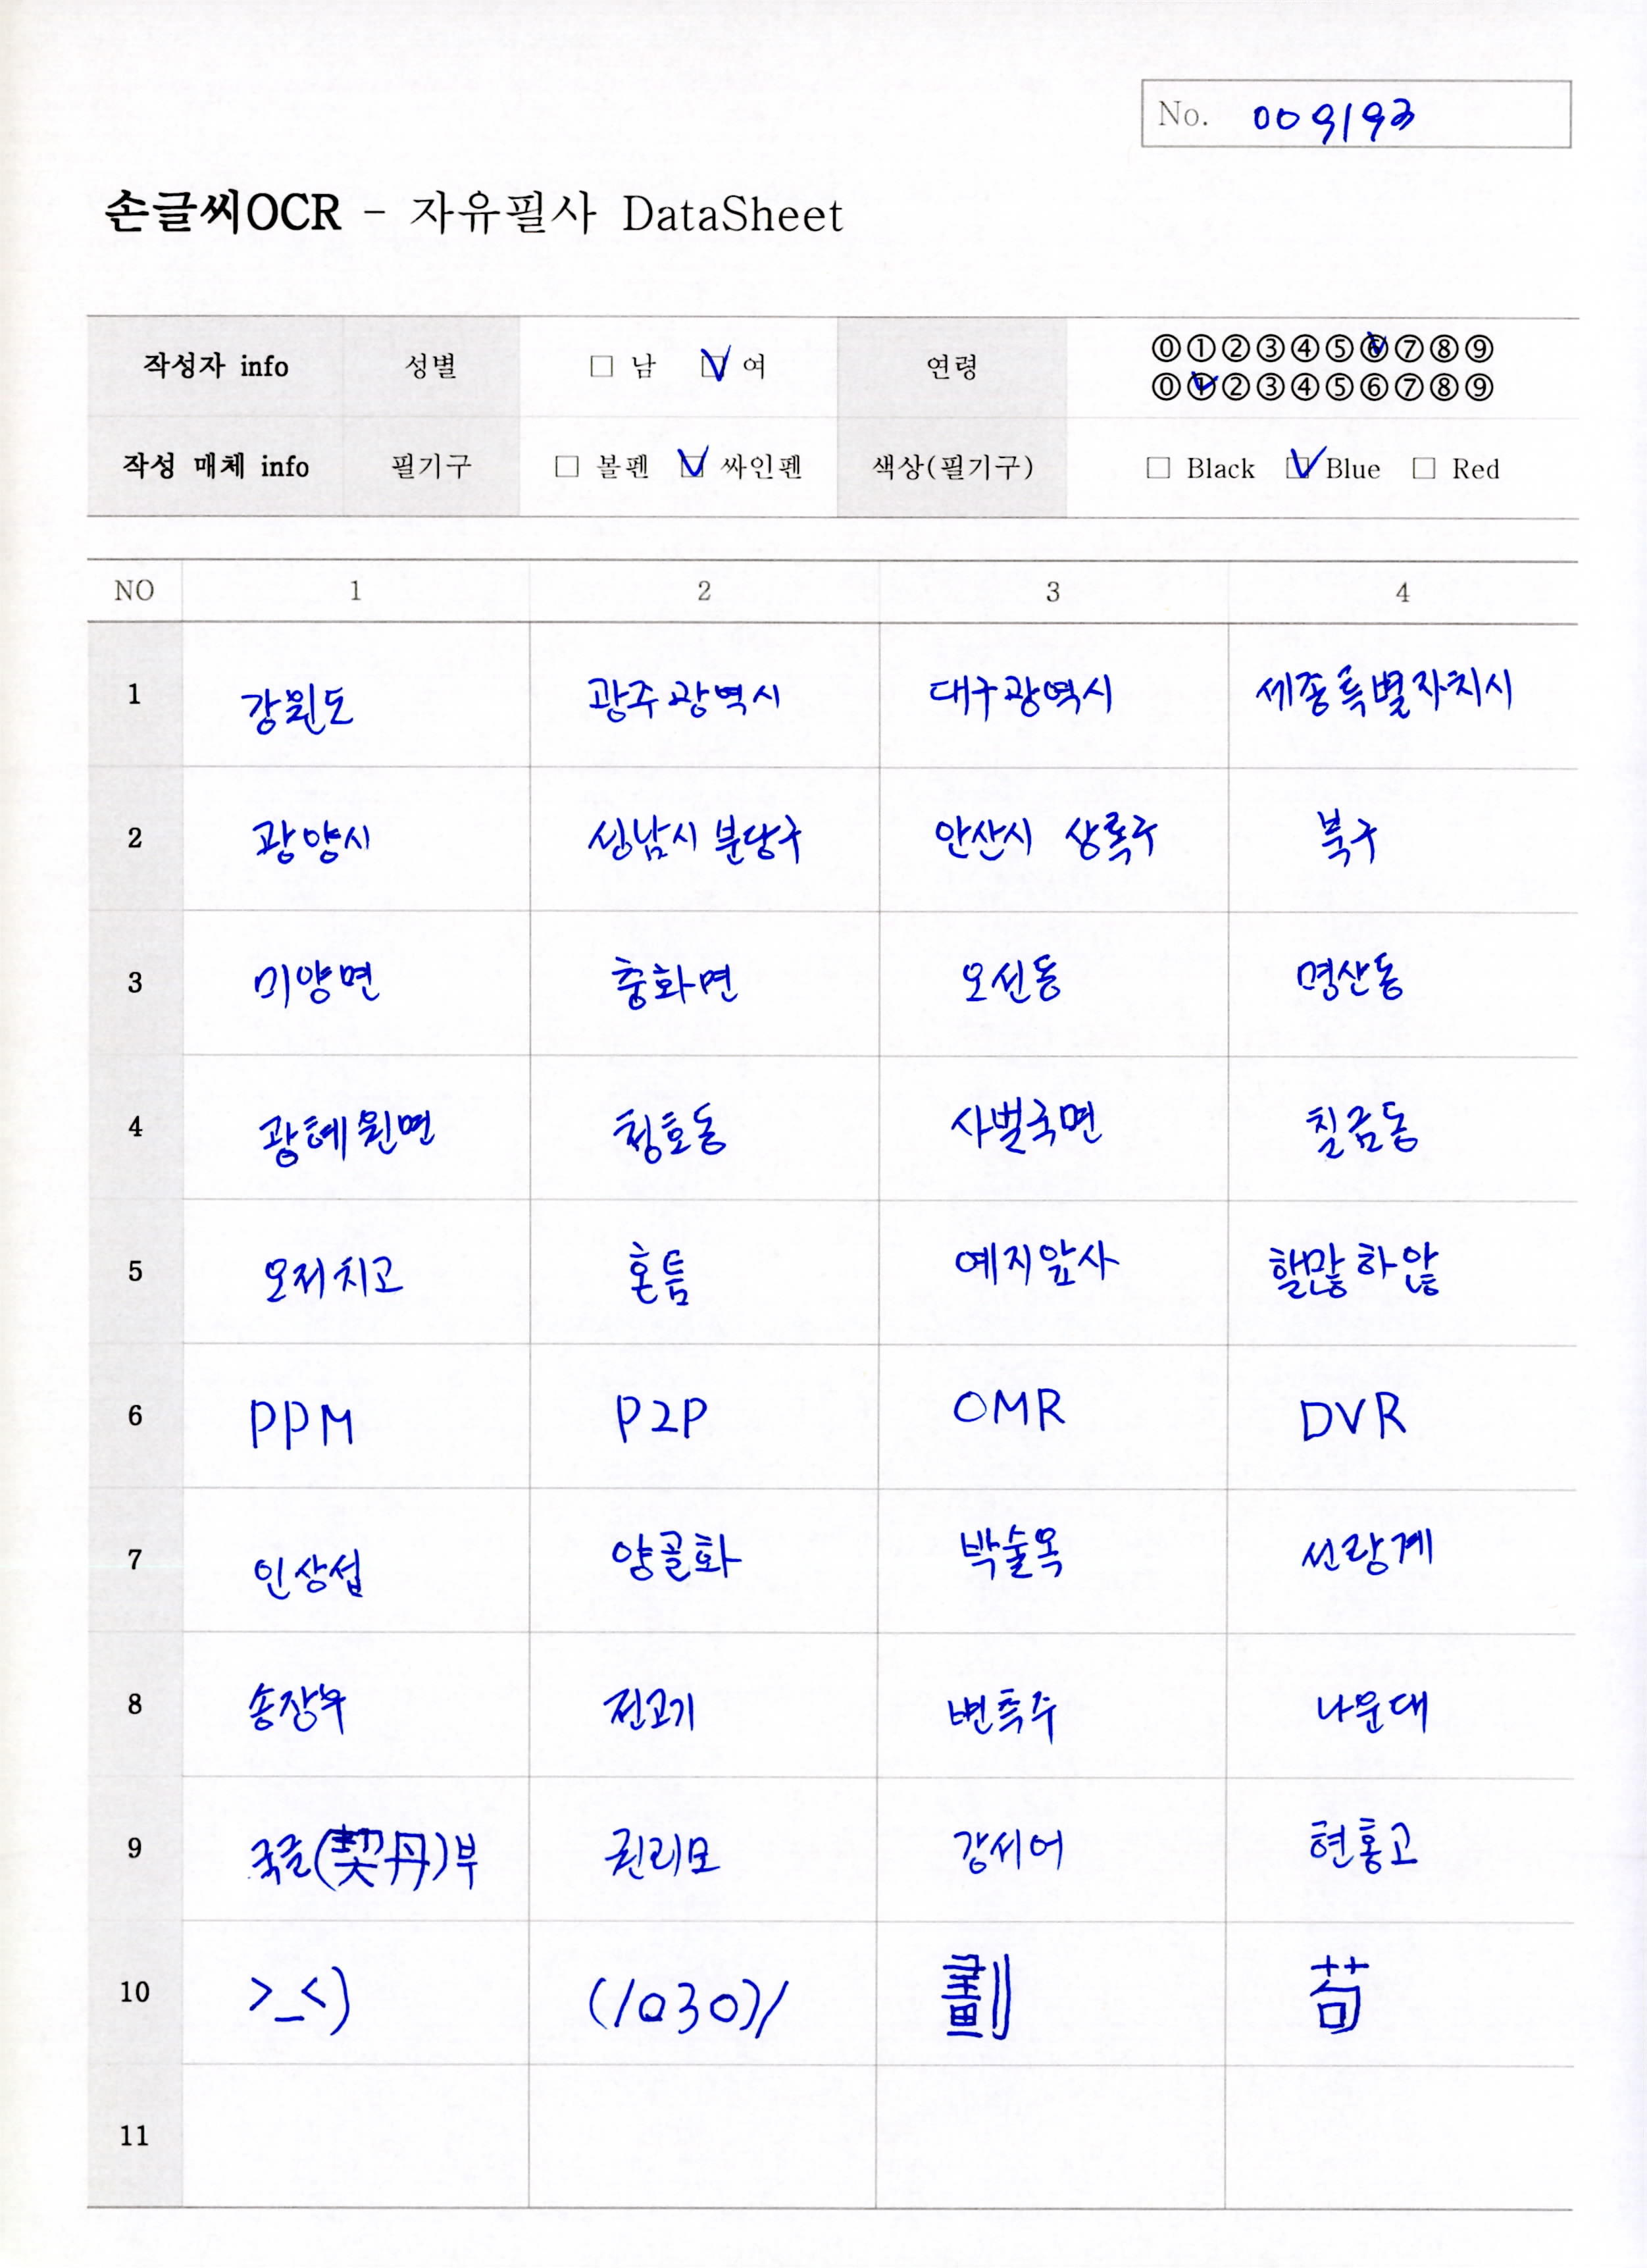 No. 009193
손글씨OCR - 자유필사 DataSheet
작성자 info 성별 □ 남 ☑ 여 연령 ⓪①②③④⑤⑥⑦⑧⑨
⓪①②③④⑤⑥⑦⑧⑨
작성 매체 info 필기구 □ 볼펜 ☑ 싸인펜 색상(필기구) □ Black ☑ Blue □ Red
NO 1 2 3 4
1 강원도 광주광역시 대구광역시 세종특별자치시
2 광양시 성남시 분당구 안산시 상록구 북구
3 미양면 충화면 오선동 명산동
4 광혜원면 청호동 사벌국면 칠금동
5 오저치고 혼틈 예지앞사 핼많하않
6 PPM P2P OMR DVR
7 인상섭 양골화 박술옥 선랑계
8 송장우 전고기 변측주 나운대
9 국글(契丹)부 권리모 강서어 현홍고
10 >_<) (/o3o)/ 劃 苟
11